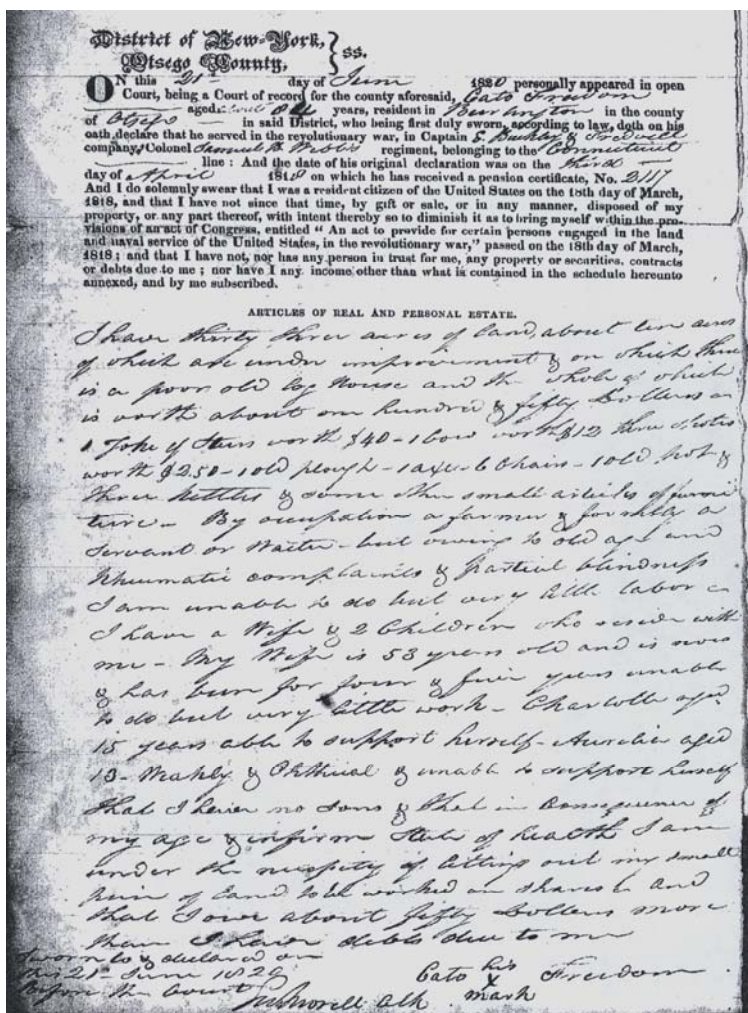 District of New-York,
Otsego County, } ss.
ON this 21st day of June 1820 personally appeared in open
Court, being a Court of record for the county aforesaid, Cato Freedom
aged about 84 years, resident in Burlington in the county
of Otsego in said District, who being first duly sworn, according to law, doth on his
oath, declare that he served in the revolutionary war, in Captain
company, Colonel Samuel B Webbs regiment, belonging to the Connecticut
line : And the date of his original declaration was on the third
day of April 1818 on which he has received a pension certificate, No. 2117
And I do solemnly swear that I was a resident citizen of the United States on the 18th day of March,
1818, and that I have not since that time, by gift or sale, or in any manner, disposed of my
property, or any part thereof, with intent thereby so to diminish it as to bring myself within the pro-
visions of an act of Congress, entitled “ An act to provide for certain persons engaged in the land
and naval service of the United States, in the revolutionary war,” passed on the 18th day of March,
1818 ; and that I have not, nor has any person in trust for me, any property or securities, contracts
or debts due to me ; nor have I any income other than what is contained in the schedule hereunto
annexed, and by me subscribed.
ARTICLES OF REAL AND PERSONAL ESTATE.
I have thirty three acres of land, about ten acres
of which are under improvement & on which there
is a poor old log House and the whole of which
is worth about one hundred & fifty Dollars
1 Yoke of Steers worth $40 - 1 Cow worth $12 three Shotes
worth $2.50 - 1 old plough - 1 axe & Chain - 1 old pot &
three kettles & some other small articles of furni
ture - By occupation a farmer & formerly a
Servant or Waiter - but owing to old age and
Rheumatic complaints & partial blindness
I am unable to do but very little labor
I have a Wife & 2 Children who reside with
me - My Wife is 53 years old and is now
& has been for four & five years unable
to do but very little work - Charlotte aged
15 years able to support herself - Aurelia aged
13 - Weakly & & unable to support herself
that I have no sons & that in Consequence of
my age & infirm State of health I am
under the necessity of letting out my small
piece of land to be worked on shares & And
that I owe about fifty Dollars more
than I have debts due to me
Sworn to & declared on
this 21st June 1820
Before the Court
Clk
Cato his Freedom
x
mark